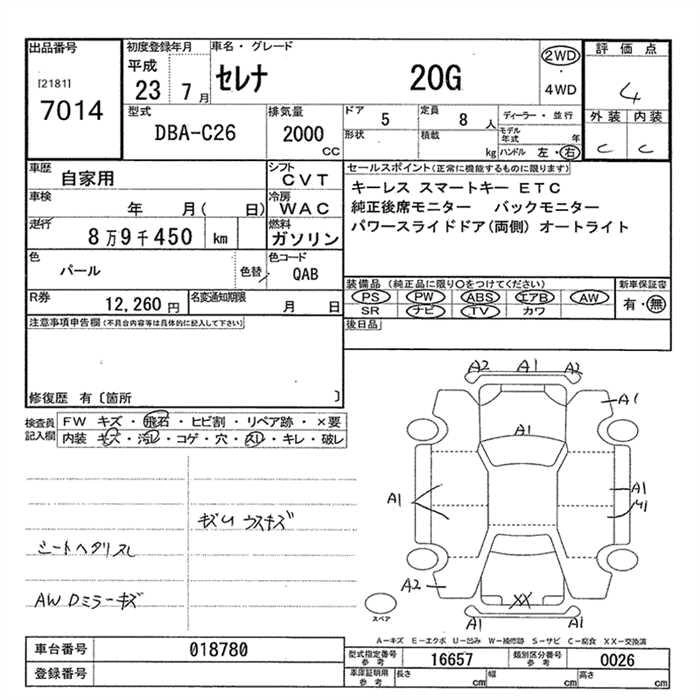 出品番号
[2181]
7014
初度登録年月
平成
23 7月
車名・グレード
セレナ 20G
2WD
・
4WD
評価点
4
外装 内装
C C
型式
DBA-C26
排気量
2000
CC
ドア
5
定員
8人
形状
積載
kg
ディーラー・並行
モデル
年式
年
ハンドル 左・右
車歴
自家用
シフト
CVT
車検
年 月( 日)
冷房
WAC
走行
8万9千450 km
燃料
ガソリン
色
パール
色替
色コード
QAB
R券
12,260円
名変通知期限
月 日
セールスポイント(正常に機能するものに限ります)
キーレス スマートキー ETC
純正後席モニター バックモニター
パワースライドドア(両側) オートライト
装備品(純正品に限り○をつけてください)
PS PW ABS エアB AW
SR ナビ TV カワ
新車保証書
有・無
後日品
注意事項申告欄(不具合内容等は具体的に記入して下さい)
修復歴 有〔箇所 〕
検査員
記入欄
FW キズ・飛石・ヒビ割・リペア跡・×要
内装 キズ・汚レ・コゲ・穴・スレ・キレ・破レ
キズU ウスキズ
シートヘタリスレ
AW Dミラーキズ
A2 A1 A2
A1
A1
A1
A1
A2
XX
A1 A1
スペア
A-キズ E-エクボ U-凹み W-補修跡 S-サビ C-腐食 XX-交換済
車台番号
018780
登録番号
型式指定番号
参考
16657
類別区分番号
参考
0026
車庫証明用
参考
長さ
cm
幅
cm
高さ
cm